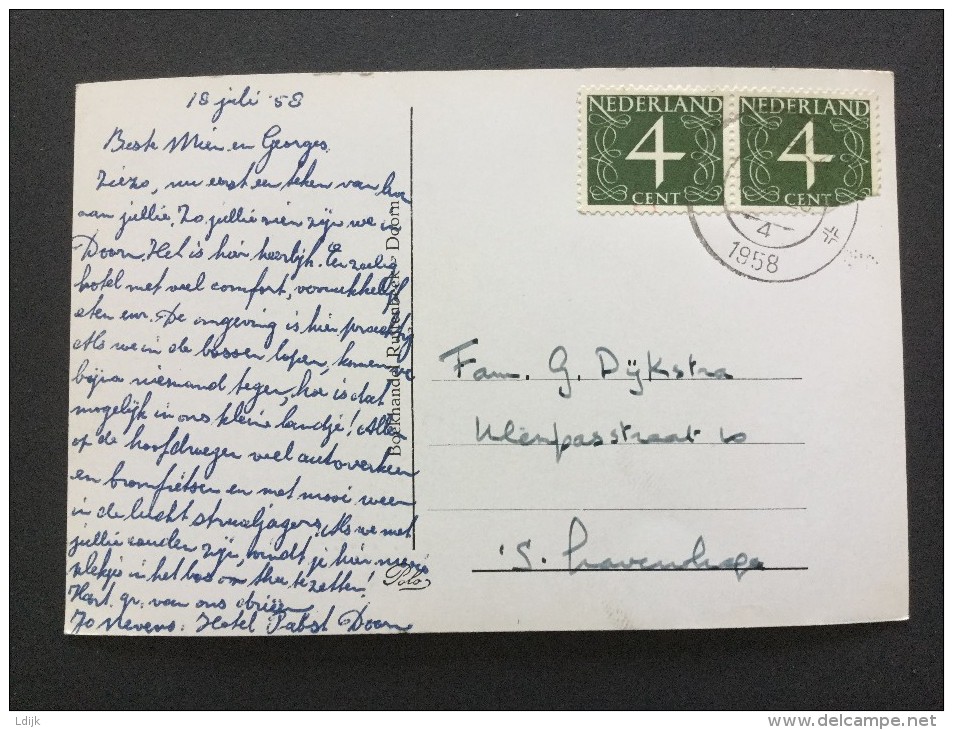 18 juli '58
Beste Mien en Georges,
Ziezo, nu eerst een teken van
aan jullie. Zo jullie zien zijn we in
Doorn. Het is hier heerlijk. Een zalig
hotel met veel comfort, voortreffelijk
eten enz. De omgeving is hier prachtig
Als we in de bossen lopen, komen we
bijna niemand tegen, hoe is dat
mogelijk in ons kleine landje! Alleen
op de hoofdwegen veel autoverkeer
en bromfietsen en met mooi weer
in de lucht straaljagers. Als we met
jullie zouden zijn, vindt je hier mooie
plekjes in het bos om thee te zetten!
Hart. gr. van ons drieën
Jo Nevens. Hotel Pabst Doorn
Boekhandel Ruitenbeek - Doorn
Polo
NEDERLAND
4
CENT
NEDERLAND
4
CENT
4
1958
Fam. G. Dijkstra
10
's. Gravenhage
Ldijk
www.delcampe.net